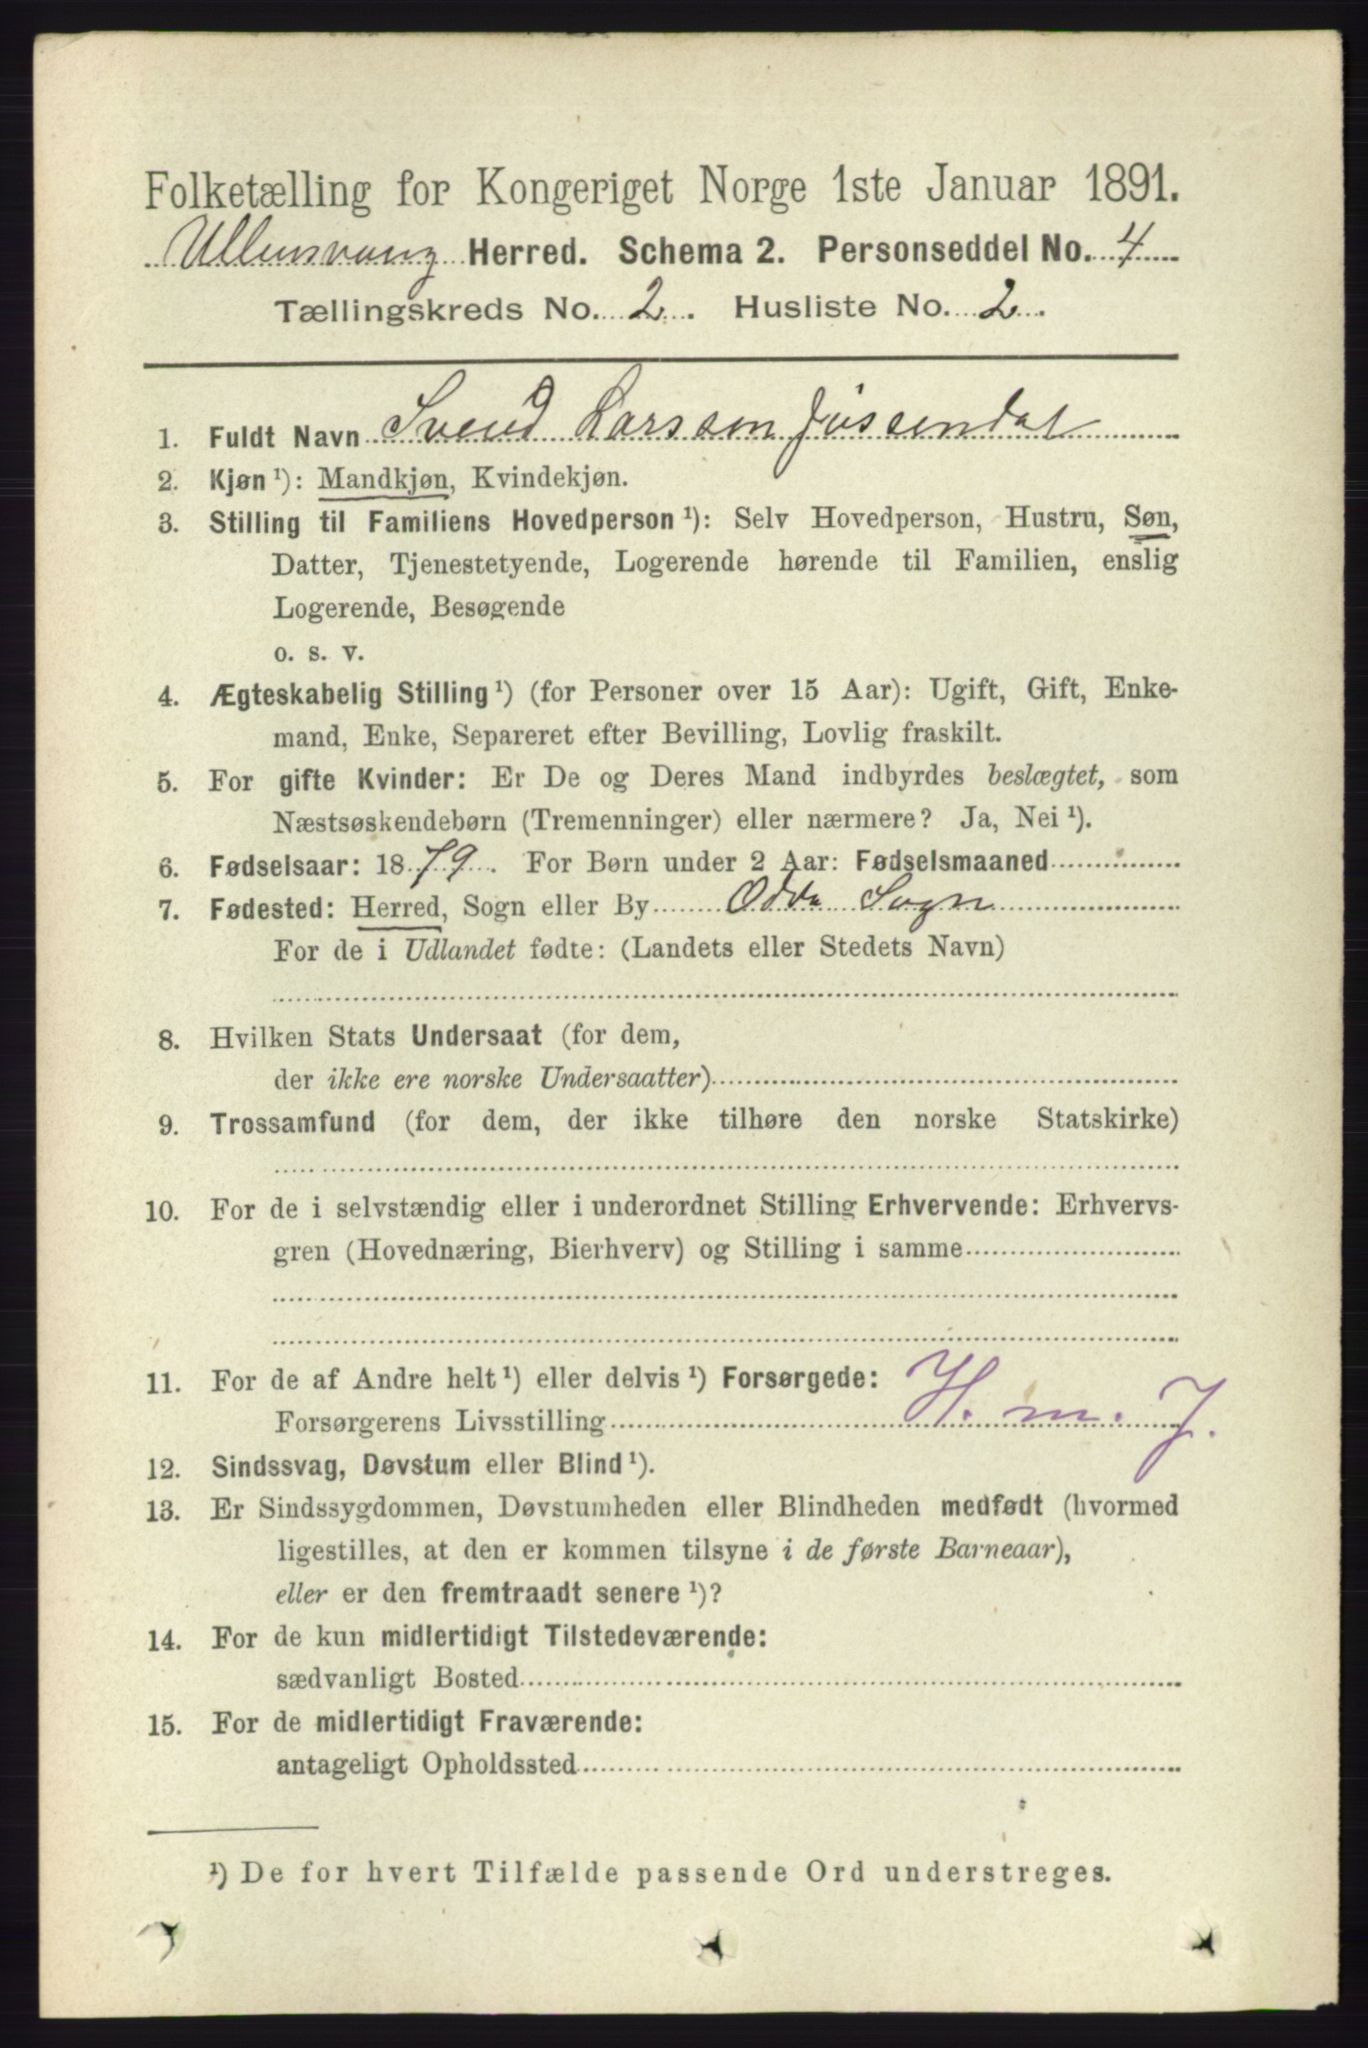 Folketælling for Kongeriget Norge 1ste Januar 1891.
Ullensvang Herred. Schema 2. Personseddel No. 4
Tællingskreds No. 2. Husliste No. 2.
1. Fuldt Navn Svend Larsson Jøsendal
2. Kjøn ¹): Mandkjøn, Kvindekjøn.
3. Stilling til Familiens Hovedperson ¹): Selv Hovedperson, Hustru, Søn,
Datter, Tjenestetyende, Logerende hørende til Familien, enslig
Logerende, Besøgende
o. s. v.
4. Ægteskabelig Stilling ¹) (for Personer over 15 Aar): Ugift, Gift, Enke-
mand, Enke, Separeret efter Bevilling, Lovlig fraskilt.
5. For gifte Kvinder: Er De og Deres Mand indbyrdes beslægtet, som
Næstsøskendebørn (Tremenninger) eller nærmere? Ja, Nei ¹).
6. Fødselsaar: 1879. For Børn under 2 Aar: Fødselsmaaned
7. Fødested: Herred, Sogn eller By Odda Sogn
For de i Udlandet fødte: (Landets eller Stedets Navn)
8. Hvilken Stats Undersaat (for dem,
der ikke ere norske Undersaatter)
9. Trossamfund (for dem, der ikke tilhøre den norske Statskirke)
10. For de i selvstændig eller i underordnet Stilling Erhvervende: Erhvervs-
gren (Hovednæring, Bierhverv) og Stilling i samme
11. For de af Andre helt ¹) eller delvis ¹) Forsørgede:
Forsørgerens Livsstilling H. m. J.
12. Sindssvag, Døvstum eller Blind ¹).
13. Er Sindssygdommen, Døvstumheden eller Blindheden medfødt (hvormed
ligestilles, at den er kommen tilsyne i de første Barneaar),
eller er den fremtraadt senere ¹)?
14. For de kun midlertidigt Tilstedeværende:
sædvanligt Bosted
15. For de midlertidigt Fraværende:
antageligt Opholdssted
¹) De for hvert Tilfælde passende Ord understreges.